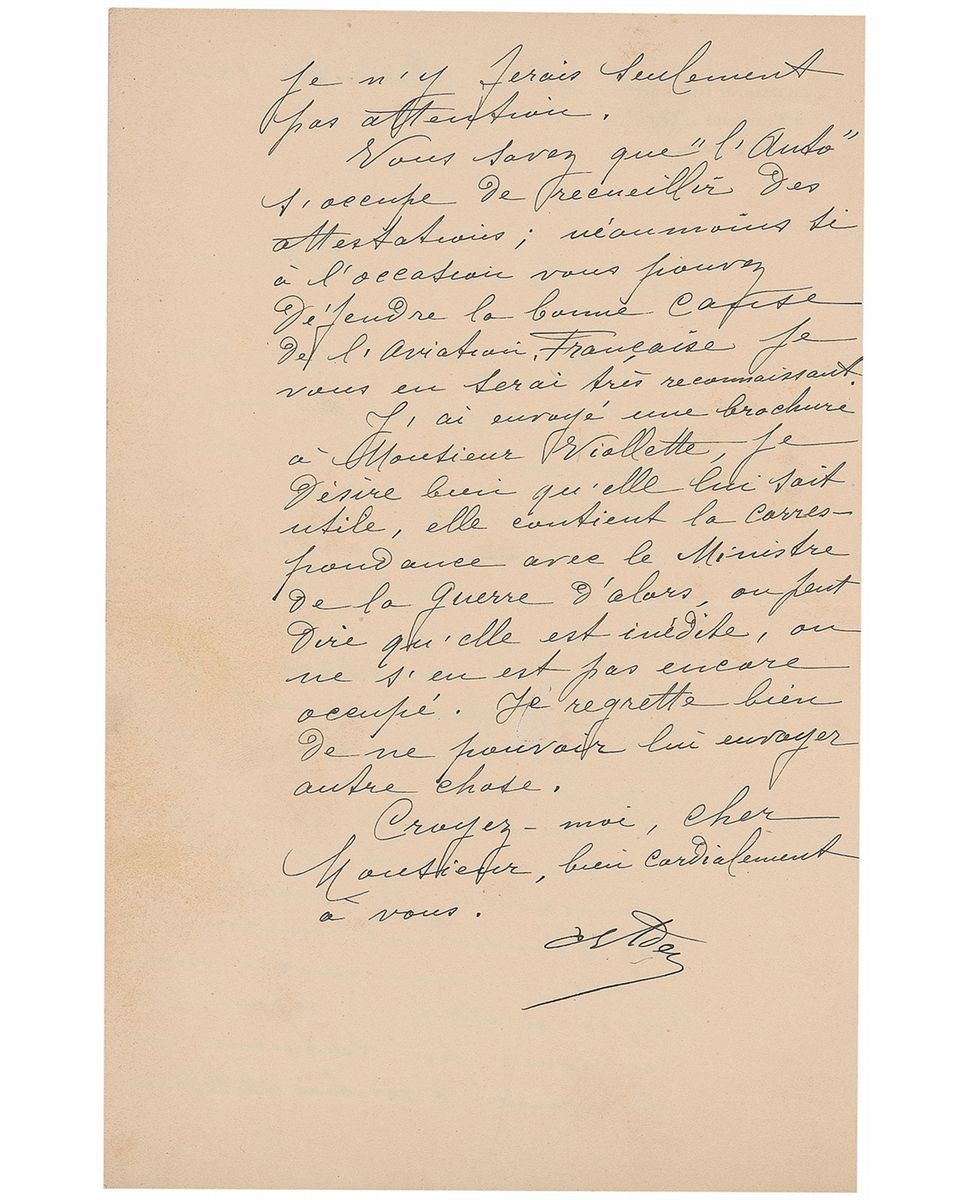 je n'y ferais seulement
pas attention.
Vous savez que "l'Auto"
s'occupe de recueillir des
attestations; néaumoins si
à l'occasion vous pouvez
défendre la bonne cause
de l'Aviation Française je
vous en serai très reconnaissant.
J'ai envoyé une brochure
à Monsieur Viollette, je
désire bien qu'elle lui soit
utile, elle contient la corres-
pondance avec le Ministre
de la Guerre d'alors, on peut
dire qu'elle est inédite, on
ne s'en est pas encore
occupé. Je regrette bien
de ne pouvoir lui envoyer
autre chose.
Croyez-moi, cher
Monsieur, bien cordialement
à vous.
Ader